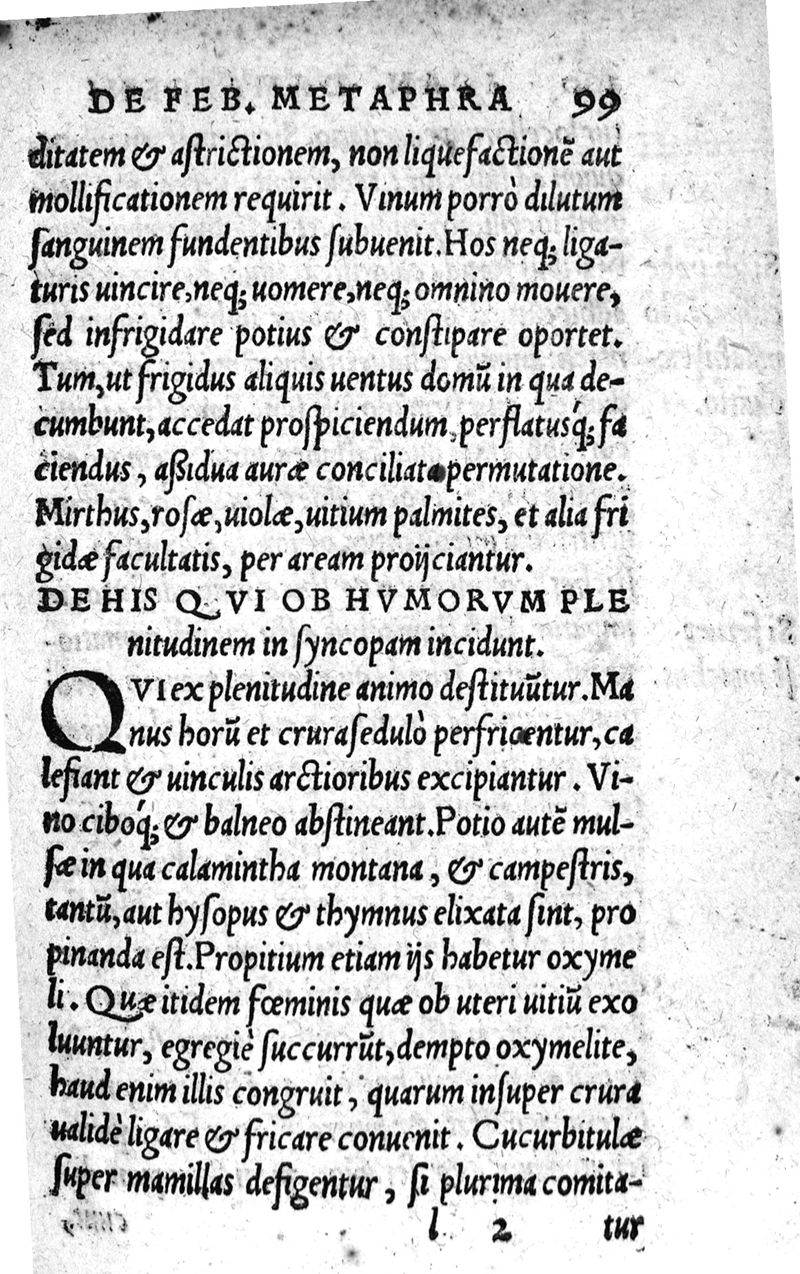 DE FEB. METAPHRA 99
ditatem & astrictionem, non liquefactionē aut
mollificationem requirit. Vinum porrò dilutum
sanguinem fundentibus subuenit. Hos neq; liga-
turis uincire, neq; uomere, neq; omnino mouere,
sed infrigidare potius & constipare oportet.
Tum, ut frigidus aliquis uentus domū in qua de-
cumbunt, accedat prospiciendum, perflatusq́; fa
ciendus, aßidua auræ conciliata permutatione.
Mirthus, rosæ, uiolæ, uitium palmites, et alia fri
gidæ facultatis, per aream proijciantur.
DE HIS QVI OB HVMORVM PLE
nitudinem in syncopam incidunt.
QVI ex plenitudine animo destituūtur. Ma
nus horū et crura sedulò perfricentur, ca
lefiant & uinculis arctioribus excipiantur. Vi-
no ciboq́; & balneo abstineant. Potio autē mul-
sæ in qua calamintha montana, & campestris,
tantū, aut hysopus & thymnus elixata sint, pro
pinanda est. Propitium etiam ijs habetur oxyme
li. Quæ itidem fœminis quæ ob uteri uitiū exo
luuntur, egregiè succurrūt, dempto oxymelite,
haud enim illis congruit, quarum insuper crura
ualidè ligare & fricare conuenit. Cucurbitulæ
super mamillas defigentur, si plurima comita-
l 2 tur